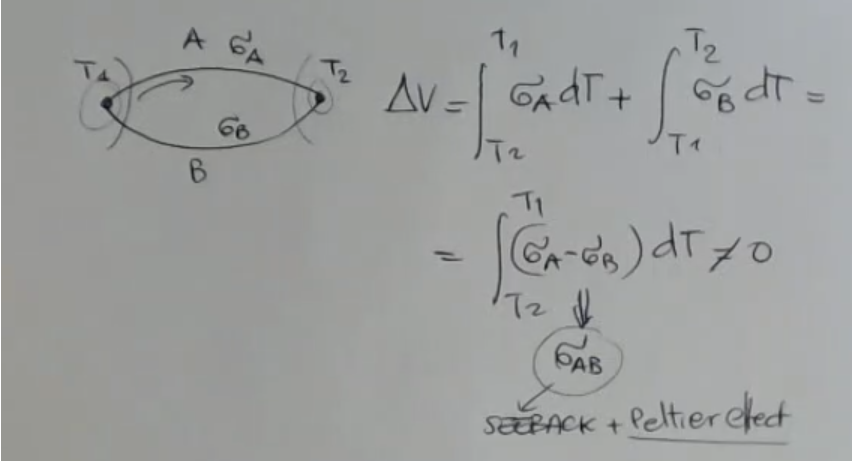 A σA
T1 T2
σB
B
ΔV = ∫_{T2}^{T1} σA dT + ∫_{T1}^{T2} σB dT =
= ∫_{T2}^{T1} (σA - σB) dT ≠ 0
⇓
σAB
SEEBACK + Peltier effect